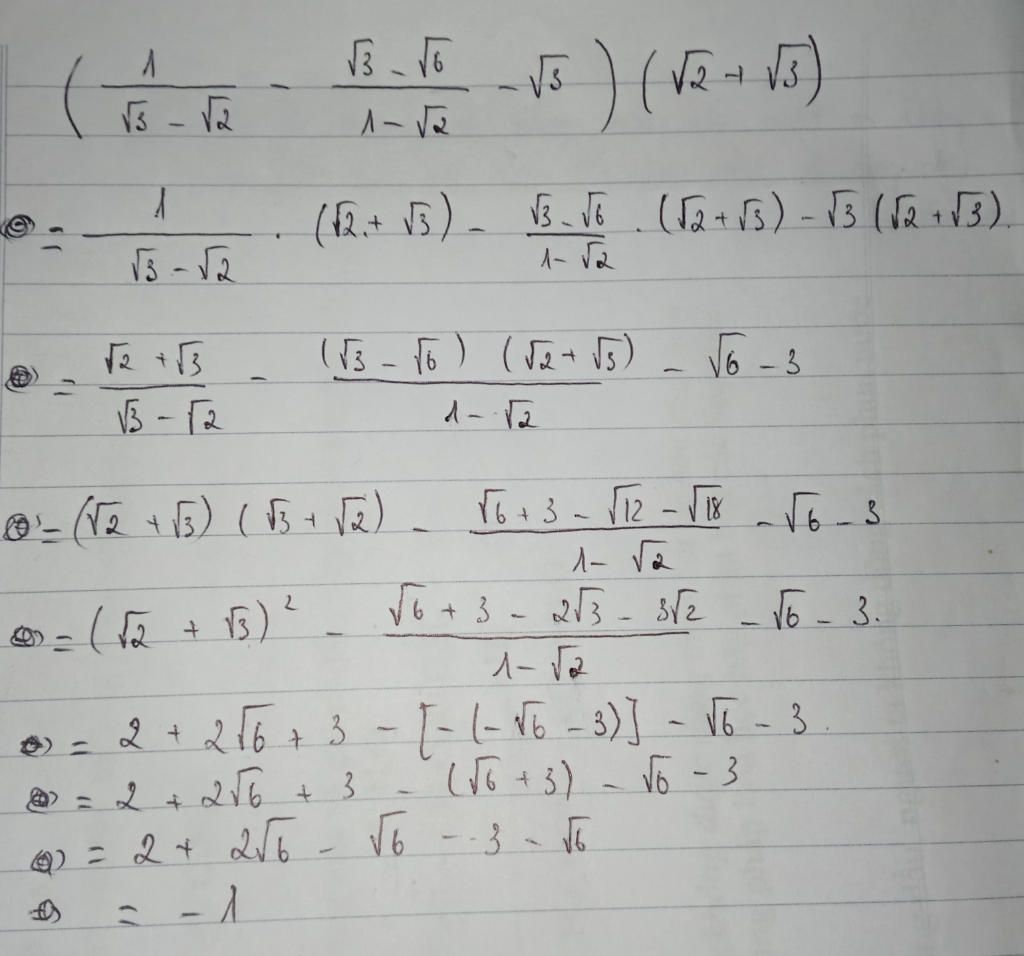 (1/(√3 - √2) - (√3 - √6)/(1 - √2) - √3) (√2 + √3)
= 1/(√3 - √2) . (√2 + √3) - (√3 - √6)/(1 - √2) . (√2 + √3) - √3 (√2 + √3).
= (√2 + √3)/(√3 - √2) - ((√3 - √6) (√2 + √3))/(1 - √2) - √6 - 3
= (√2 + √3) (√3 + √2) - (√6 + 3 - √12 - √18)/(1 - √2) - √6 - 3
= (√2 + √3)² - (√6 + 3 - 2√3 - 3√2)/(1 - √2) - √6 - 3.
= 2 + 2√6 + 3 - [-(-√6 - 3)] - √6 - 3.
= 2 + 2√6 + 3 - (√6 + 3) - √6 - 3
= 2 + 2√6 - √6 - 3 - √6
= - 1